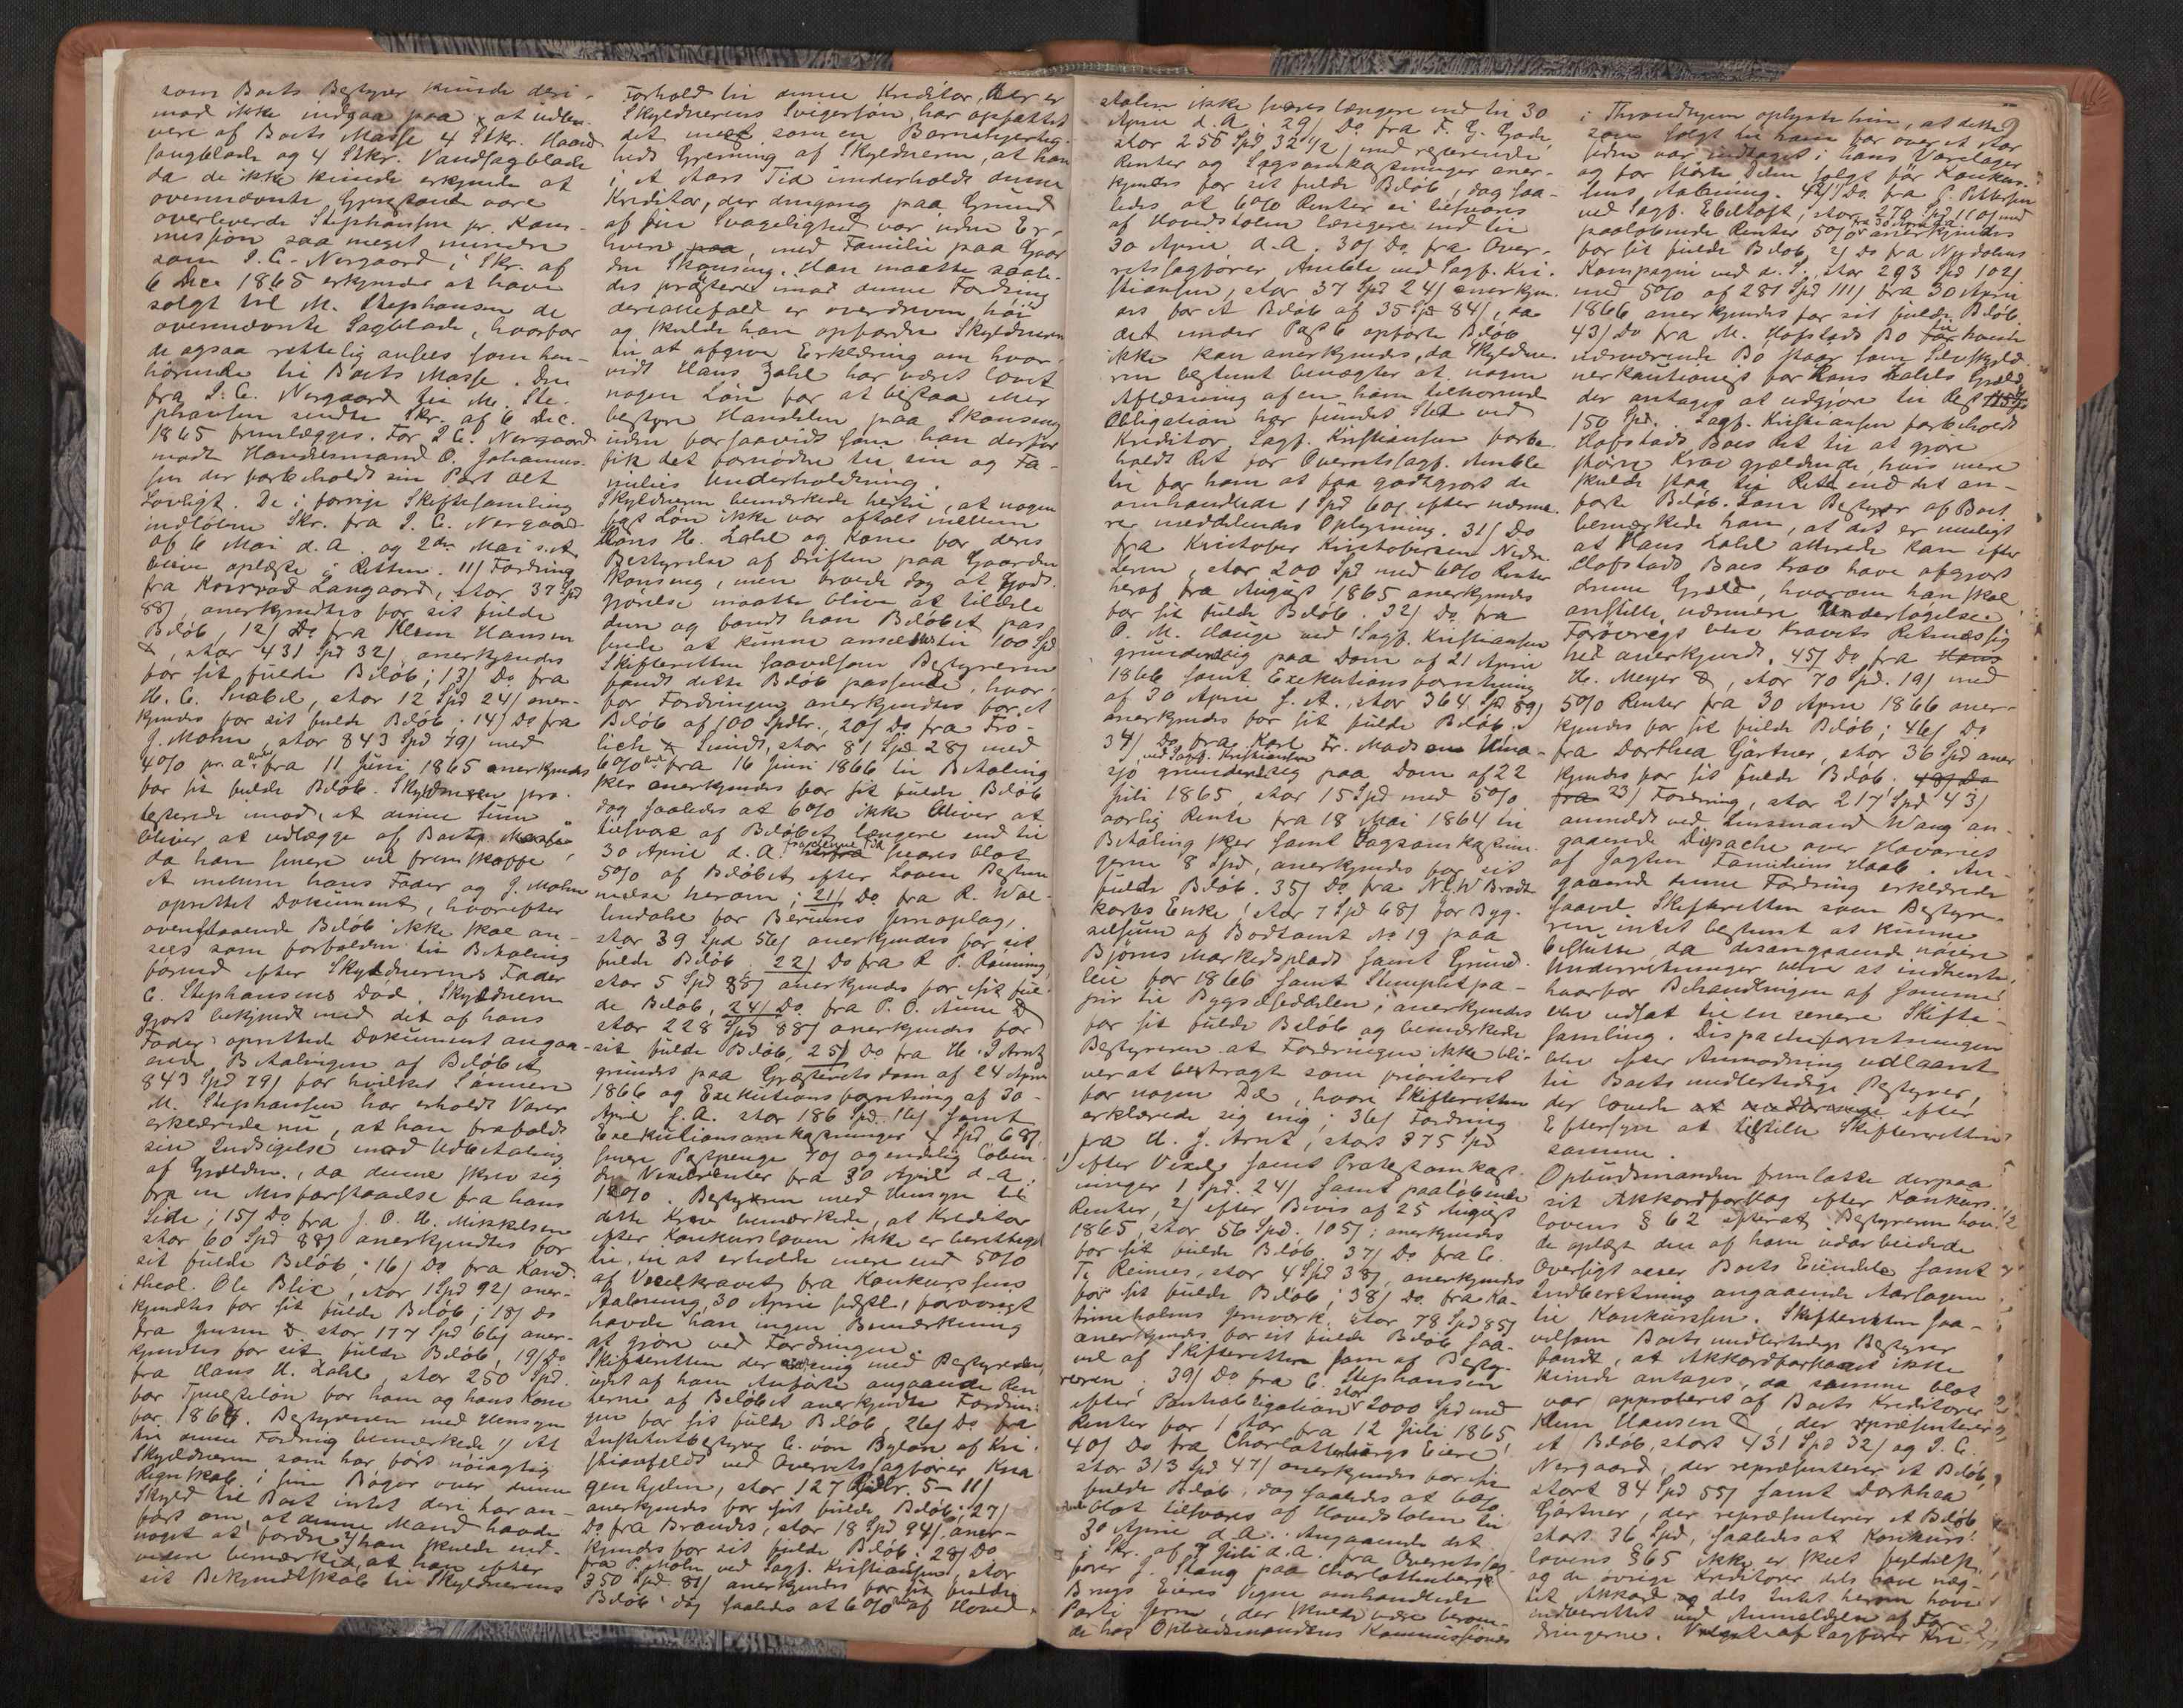 som Boets Bestyrer kunde deri-
mod ikke indgaa paa at udle-
vere af Boets Masse 4 Stkr. Haand
saugblade og 4 Stkr. Vandsagblade
da de ikke kunde erkjende at
ovennævnte Gjenstande vare
overleverede Stephansen pr. Kom-
mission saa meget mindre
som I. C. Norgaard i Skr. af
6 Dec 1865 erkjender at have
solgt til M. Stephansen de
ovennævnte Sagblade, hvorfor
de ogsaa rettelig ansees som hen-
hørende til Boets Masse. Den
fra I. C. Norgaard til M. Ste-
phansen sendte Skr. af 6 Dec.
1865 fremlægges. For I. C. Norgaard
mødte Handelsmand O. Johannes-
sen der forbeholdt sin Part Alt
Lovligt. De i forrige Skiftesamling
indløbne Skr. fra I. C. Norgaard
af 6 Mai d. A. og 2den Mai s. A.
bleve oplæste i Retten. 11) Fordring
fra Konrad Langaard, stor 37 Spd
88), anerkjendtes for sit fulde
Beløb, 12) Do fra Klem Hansen
&, stor 431 Spd 32), anerkjendes
for sit fulde Beløb; 13) Do fra
H. C. Snabel, stor 12 Spd 24) aner-
kjendes for sit fulde Beløb. 14) Do fra
J. Mohn, stor 843 Spd 79) med
4% pr. a fra 11 Juni 1865 anerkjendes
for sit fulde Beløb. Skyldneren pro-
testerede imod, at denne Sum
bliver at udlægge af Boets Masse
da han senere vil fremskaffe
et mellem hans Fader og J. Mohn
oprettet Dokument, hvorefter
ovenstaaende Beløb ikke skal an-
sees som forfalden til Betaling
førend efter Skyldnerens Fader
C. Stephansens Død. Skyldneren
gjort bekjendt med det af hans
Fader oprettede Dokument angaa-
ende Betalingen af Beløbet
843 Spd 79) for hvilket Sønnen
M. Stephansen har erholdt Varer
erklærede nu, at han frafaldt
sin Indsigelse mod Udbetaling
af Gjælden, da denne skrev sig
fra en Misforstaaelse fra hans
Side; 15) Do fra J. O. H. Mikkelsen
stor 60 Spd 88) anerkjendtes for
sit fulde Beløb; 16) Do fra Kand.
theol. Ole Blix, stor 1 Spd 92) aner-
kjendtes for sit fulde Beløb; 18) Do
fra Jensen & stor 177 Spd 66) aner-
kjendtes for sit fulde Beløb, 19) Do
fra Hans H. Zahl, stor 250 Spd.
for Tjenesteløn for ham og hans Kone
for 1864. Bestyreren med Hensyn
til denne Fordring bemærkede 1) At
Skyldneren som har ført nøiagtig
Regnskab i sine Bøger over denne
Skyld til Boet intet deri har an-
ført om, at denne Mand havde
noget at fordre 2) han skulde end-
videre bemærke, at han efter
sit Bekjendtskab til Skyldnerens
Forhold til denne Kreditor, der er
Skyldnerens Svigersøn, har opfattet
det mest som en Barmhjertig-
heds Gjerning af Skyldneren, at han
i et Aars Tid underholdt denne
Kreditor, der dengang paa Grund
af sin Svagelighed var uden Er-
hverv paa, med Familie paa Gaar
den Skonseng. Han maatte saale-
des protestere imod denne Fordring
der iallefald er overdreven høi
og skulde han opfordre Skyldneren
til at afgive Erklæring om hvor-
vidt Hans Zahl har været lovet
nogen Løn for at bestaa eller
bestyre Handelen paa Skonseng
uden forsaavidt som han derfor
fik det fornødne til sin og Fa-
milies Underholdning.
Skyldneren bemærkede hertil, at nogen
vis Løn ikke var aftalt mellem
Hans H. Zahl og Kone for deres
Bestyrelse af Driften paa Gaarden
Skonseng, men troede dog at Godt-
gjørelse maatte blive at tildele
dem og fandt han Beløbet pas
sende at kunne ansættes til 100 Spd
Skifteretten saavelsom Bestyreren
fandt dette Beløb passende, hvor-
for Fordringen anerkjendes for et
Beløb af 100 Spdlr. 20) Do fra Frö-
lich & Smidt, stor 81 Spd 28) med
6% fra 16 Juni 1866 til Betaling
sker anerkjendes for sit fulde Beløb
dog saaledes at 6% ikke bliver at
tilsvare af Beløbet længere end til
30 April d. A. fra denne Tid svares blot
5% af Beløbet efter Loven Bestem
melse herom; 21) Do fra R. Wal-
lendahl for Berums Jernoplag,
stor 39 Spd 56) anerkjendes for sit
fulde Beløb. 22) Do fra R. P. Rønning
stor 5 Spd 35) anerkjendes for sit ful-
de Beløb, 24) Do fra P. O. Aune &
stor 228 Spd 88) anerkjendes for
sit fulde Beløb, 25) Do fra H. J. Arntz
grundet paa Gjæsterets dom af 24 April
1866 og Exekutionsforretning af 30-
April s. A. stor 186 Spd 16) samt
Exekutionsomkostninger 4 Spd 68)
senere Postpenge 70) og endelig Løben-
de Vexelrenter fra 30 April d. A.
12%. Bestyreren med Hensyn til
dette Krav bemærkede, at Kreditor
efter Konkursloven ikke er berettiget
til, til at erholde mere end 5%
af Vexelkravet fra Konkursens
Aabning, 30 April sidstl., forøvrigt
havde han ingen Bemærkning
at gjøre ved Fordringen.
Skifteretten der var enig med Bestyreren,
ved af ham Anførte angaaende Ren
terne af Beløbet anerkjendte Fordrin-
gen for sit fulde Beløb, 26) Do fra
Institutbestyrer C. von Bylow af Kri-
stiansfeldt ved Overretssagfører Kna-
genhjelm, stor 127 Rdlr. 5-11)
anerkjendes for sit fulde Beløb; 27)
Do fra Brandis, stor 18 Spd 94), aner-
kjendes for sit fulde Beløb. 28) Do
fra P. Mohn ved Sagf. Kristiansen, stor
350 Spd. 81) anerkjendes for sit fulde
Beløb, dog saaledes at 6% af Hoved-
stolen ikke svares længere end til 30
April d. A. 29) Do fra F. G. Gade,
stor 255 Spd 32 1/2) med resterende
Renter og Sagsomkostninger aner-
kjendes for sit fulde Beløb, dog saa-
ledes at 6% Renter ei tilsvares
af Hovedstolen længere end til
30 April d. A. 30) Do fra Over-
retssagfører Amble ved Sagf. Kri-
stiansen, stor 37 Spd 24) anerkjen-
des for et Beløb af 35 Spd 84), da
det under Post 6 opførte Beløb
ikke kan anerkjendes, da Skyldne-
ren bestemt benægter at nogen
Aflæsning af en ham tilhørende
Obligation har fundet Sted ved
Kreditor. Sagf. Kristiansen forbe-
holdt Ret for Overretssagf. Amble
til for ham at faa godtgjort de
omhandlede 1 Spd 60) efter nærme-
re meddelendes Oplysning. 31) Do
fra Kristofer Kristofersen Nedre
Leren, stor 200 Spd med 6% Renter
heraf fra August 1865 anerkjendes
for sit fulde Beløb. 32) Do fra
O. M. Hauge ved Sagf. Kristiansen
grundet sig paa Dom af 21 April
1866 samt Exekutionsforretning
af 30 April s. A., stor 364 Spd 89)
anerkjendes for sit fulde Beløb.
34) Do fra Karl Fr. Madsen Uma-
ved Sagf. Kristiansen
grundet sig paa Dom af 22
Juli 1865, stor 15 Spd med 5%
aarlig Rente fra 18 Mai 1864 til
Betaling sker samt Sagsomkostnin-
gerne 8 Spd, anerkjendes for sit
fulde Beløb. 35) Do fra N. C. W. Brodt-
korbs Enke, stor 7 Spd 68) for Byg-
selsum af Bodtomt No 19 paa
Bjørns Markedsplads samt Grund-
leie for 1866 samt Stempletpa-
pir til Bygselseddelen; anerkjendes
for sit fulde Beløb og bemærkede
Bestyreren at Fordringen ikke bli-
ver at betragte som prioriteret
for nogen Del, hvori Skifteretten
erklærede sig enig; 36) Fordring
fra H. J. Arnt, stort 375 Spd
1) efter Vexel samt Protestomkost-
ninger 1 Spd. 24) samt paaløbende
Renter, 2) efter Bevis af 25 August
1865, stor 56 Spd. 105); anerkjendes
for sit fulde Beløb. 37) Do fra C.
T. Reines, stor 4 Spd 38), anerkjendes
for sit fulde Beløb; 38) Do fra Ka-
trineholms Jernverk, stor 78 Spd 85)
anerkjendes for sit fulde Beløb saa-
vel af Skifteretten som af Besty-
reren. 39) Do fra C. Stephansen
efter Pantobligation stor 2000 Spd med
Renter for 1 Aar fra 12 Juli 1865,
40) Do fra Charlottenbergs Eiere
stor 313 Spd 47) anerkjendes for sit
fulde Beløb, dog saaledes at 6%
blot tilsvares af Hovedstolen til
30 April d. A. Angaaende det
i Skr. af 7 Juli d. A. fra Overretssag-
fører J. Stang paa Charlottenbergs
Brugs Eieres Vegne omhandlede
Parti Jern, der skulde være beroen-
de hos Opbudsmandens Kommissionær
i Throndhjem oplyste han, at dette
som solgt til ham for over et Aar
siden var indtaget i hans Varelager
og for største Delen solgt før Konkur-
sens Aabning. 42) Do fra P. Pettersen
ved Sagf. Ebeltoft, stor 270 Spd 110) med
paaløbende Renter 5% fra 30 April d. A. anerkjendes
for sit fulde Beløb, 2) Do fra Nydalens
Kompagni ved d. S., stor 293 Spd 102)
med 5% af 281 Spd 111) fra 30 April
1866 anerkjendes for sit fulde Beløb
43) Do fra M. Hofstads Bo til hvem
nærværende Bo staar som Selvskyld-
nerkautionist for Hans Zahls Gjæld,
der antages at udgjøre til Rest
150 Spd. Sagf. Kristiansen forbeholdt
Hofstads Boes Ret til at gjøre
større Krav gjældende, hvis mere
skulde staa til Rest end det an-
førte Beløb. Som Bestyrer af Boet
bemærkede han, at det er muligt
at Hans Zahl allerede kan efter
Hofstads Boes Krav have afgjort
denne Gjæld, hvorom han skal
anstille nærmere Undersøgelse.
Forøvrigt blev Kravets Retmæssig
hed anerkjendt. 45) Do fra Hans
H. Meyer &, stor 70 Spd. 19) med
5% Renter fra 30 April 1866 aner-
kjendes for sit fulde Beløb; 46) Do
fra Dorthea Gärtner, stor 36 Spd aner
kjendes for sit fulde Beløb. 48) Do
fra 23) Fordring, stor 217 Spd 43)
anmeldt ved Lensmand Wang an-
gaaende Dispache over Havariet
af Jagten Familiens Haab. An-
gaaende denne Fordring erklærede
saavel Skifteretten som Bestyre-
ren intet bestemt at kunne
beslutte, da desangaaende nøiere
Underretninger bliver at indhente,
hvorfor Behandlingen af samme
blev udsat til en senere Skifte-
samling. Dispacheforretningen
blev efter Anmodning udlaant
til Boets midlertidige Bestyrer,
der lovede at medbringe efter
Eftersyn at tilstille Skifteretten
samme.
Opbudsmanden fremlagde derpaa
sit Akkordforslag efter Konkurs-
lovens § 62 efterat Bestyreren hav-
de oplæst den af ham udarbeidede
Oversigt over Boets Eiendele samt
Indberetning angaaende Aarsagerne
til Konkursen. Skifteretten saa-
velsom Boets midlertidige Bestyrer
fandt, at Akkordforslaget ikke
kunde antages, da samme blot
var approberet af Boets Kreditorer
Klem Hansen &, der repræsenterer
et Beløb, stort 431 Spd 32) og I. C.
Norgaard, der repræsenterer et Beløb,
stort 84 Spd 55) samt Dorthea
Gärtner, der repræsenterer et Beløb
stort 36 Spd, saaledes at Konkurs-
lovens § 65 ikke er skeet fyldest
og de øvrige Kreditorer dels have næg-
tet Akkord og dels Intet herom have
indberettet ved Anmeldelsen af For-
dringerne. Valgt af Sagfører Kri-